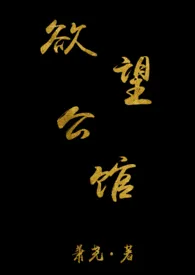 欲望
公馆
萧尧·著